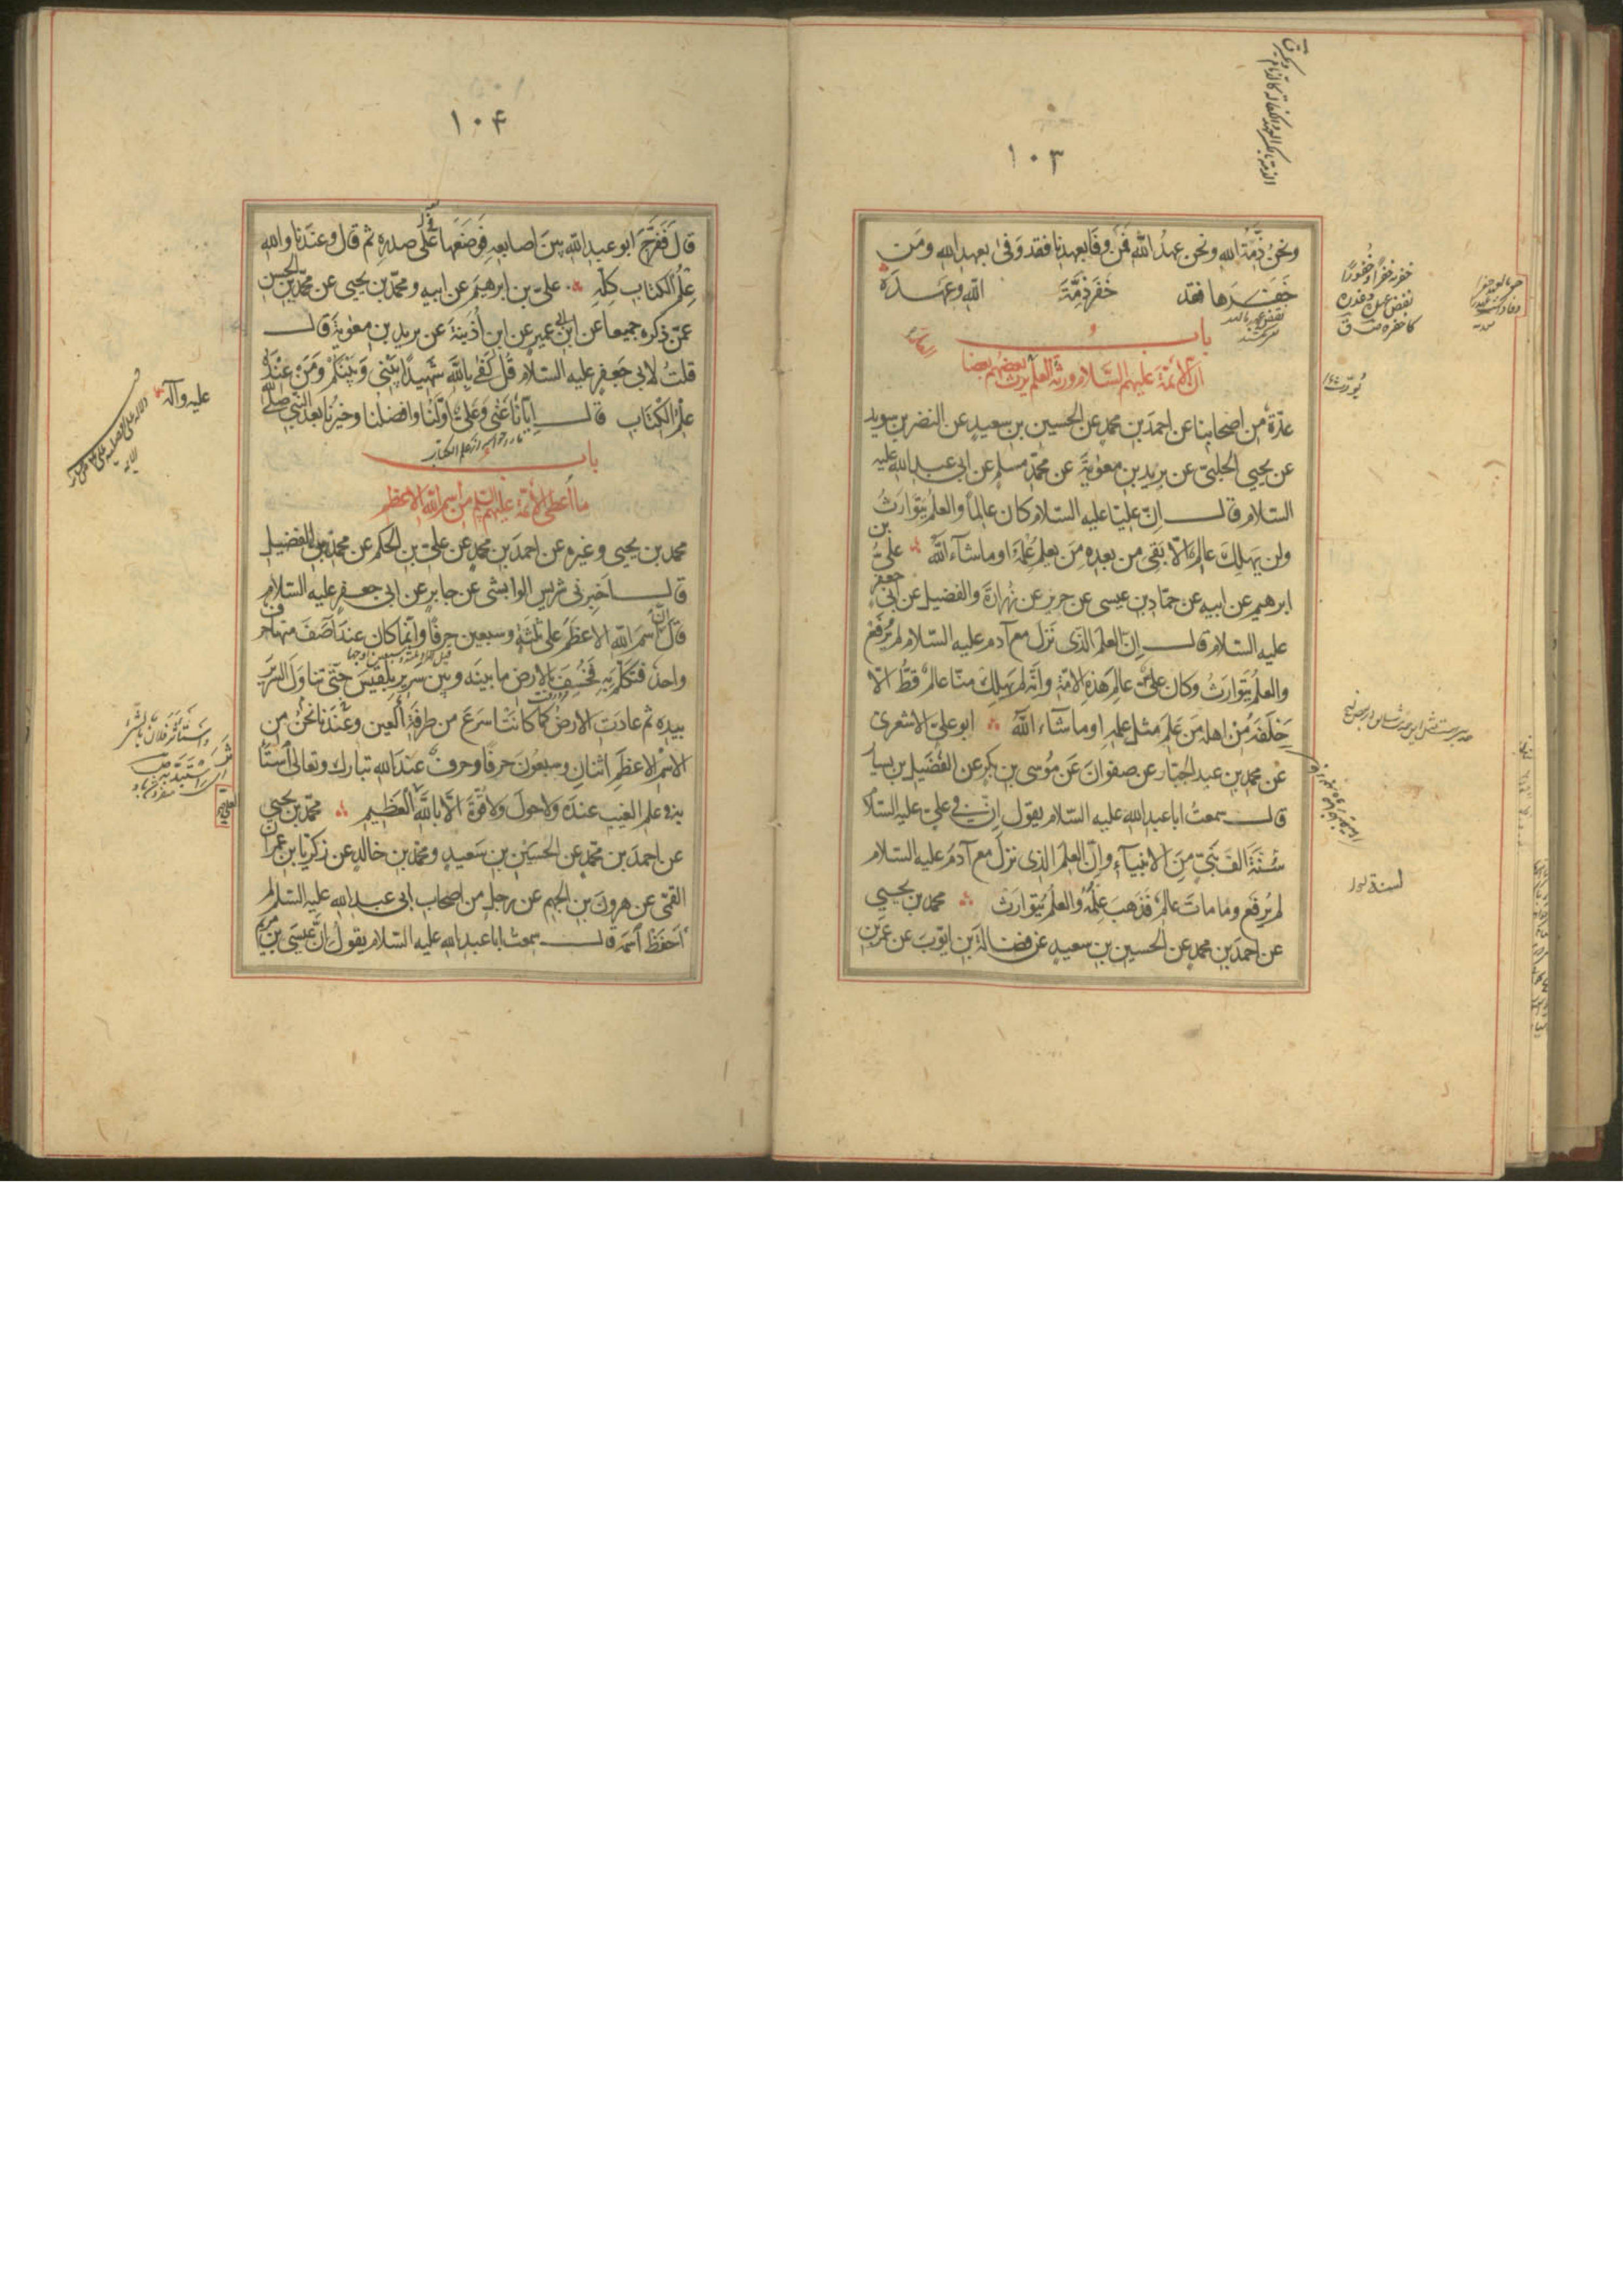 ١٠٣
ونحن ذمّة الله ونحن عهد الله فمن وفا بعهدنا فقد وفى بعهد الله ومن
خفرها فقد خفر ذمّة الله وعهده
باب
انّ الائمّة عليهم السّلام ورثة العلم يرث بعضهم بعضا
عدّة من اصحابنا عن احمد بن محمد عن الحسين بن سعيد عن النضر بن سويد
عن يحيى الحلبيّ عن بريد بن معوية عن محمّد مسلم عن ابى عبد الله عليه
السلام قال انّ عليّا عليه السلام كان عالماً والعلم يتوارث
ولن يهلك عالم الّا بقى من بعده من يعلم علمه اوما شآء الله علىّ بن
ابرهيم عن ابيه عن حمّاد بن عيسى عن حريز عن زرارة والفضيل عن ابى جعفر
عليه السلام قال انّ العلم الذى نزل مع آدم عليه السلام لم يرفع
والعلم يتوارث وكان علىّ عالم هذه الامّة وانّه لم يهلك منّا عالم قطّ الّا
خلفه من اهله من علم مثل علمه اوما شآء الله ابو علىّ الاشعرى
عن محمد بن عبد الجبّار عن صفوان عن موسى بن بكر عن الفضيل بن يسار
قال سمعت ابا عبد الله عليه السّلام يقول انّ فى علىّ عليه السّلام
سنّة الف نبىّ من الانبيآء وانّ العلم الذى نزل مع آدم عليه السلام
لم يرفع وما مات عالم فذهب علمه والعلم يتوارث محمد بن يحيى
عن احمد بن محمد عن الحسين بن سعيد عن فضالة بن ايّوب عن عمر بن
خفره خفراً وخفوراً
نقض عهده وغدره
كاخفره ق
يورث
١٠۴
قال ففرّج ابو عبد الله بين اصابعه فوضعها على صدره ثم قال وعندنا والله
علم الكتاب كلّه علىّ بن ابرهيم عن ابيه ومحمّد بن يحيى عن محمّد بن الحسن
عمّن ذكره جميعا عن ابن ابى عمير عن ابن اذينة عن بريد بن معوية قال
قلت لابى جعفر عليه السّلام قل كفى بالله شهيداً بينى وبينكم ومن عنده
علم الكتاب قال ايّانا عنى وعلىّ اوّلنا وافضلنا وخيرنا بعد النّبى صلّى الله
عليه وآله
باب
ما اعطى الائمّة عليهم السّلم من اسم الله الاعظم
محمد بن يحيى وغيره عن احمد بن محمد عن علىّ بن الحكم عن محمّد بن الفضيل
قال اخبرنى شريس الوابشى عن جابر عن ابى جعفر عليه السلام
قال انّ اسم الله الاعظم على ثلثة وسبعين حرفاً وانّما كان عند آصف منها حرف
واحد فتكلّم به فخسف بالارض ما بينه وبين سرير بلقيس حتّى تناول السّرير
بيده ثم عادت الارض كما كانت اسرع من طرفة العين وعندنا نحن من
الاسم الاعظم اثنان وسبعون حرفاً وحرف عند الله تبارك وتعالى استاثر
به فى علم الغيب عنده ولا حول ولا قوّة الّا بالله العظيم محمّد بن يحيى
عن احمد بن محمّد عن الحسين بن سعيد ومحمد بن خالد عن زكريّا بن عمران
القمّى عن هرون بن الجهم عن رجل من اصحاب ابى عبد الله عليه السّلم لم
احفظ اسمه قال سمعت ابا عبد الله عليه السّلام يقول انّ عيسى بن مريم
العلىّ